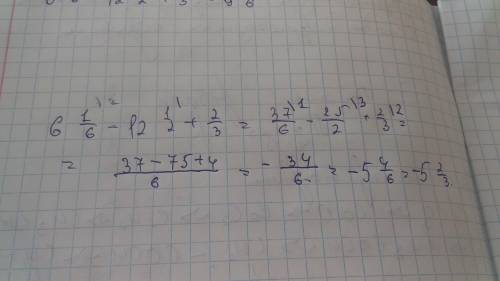 6 1/6 \² - 12 1/2 \ + 2/3 = 37/6 \1 - 25/2 \3 + 2/3 \2 =
= (37 - 75 + 4)/6 = - 34/6 = -5 4/6 = -5 2/3.